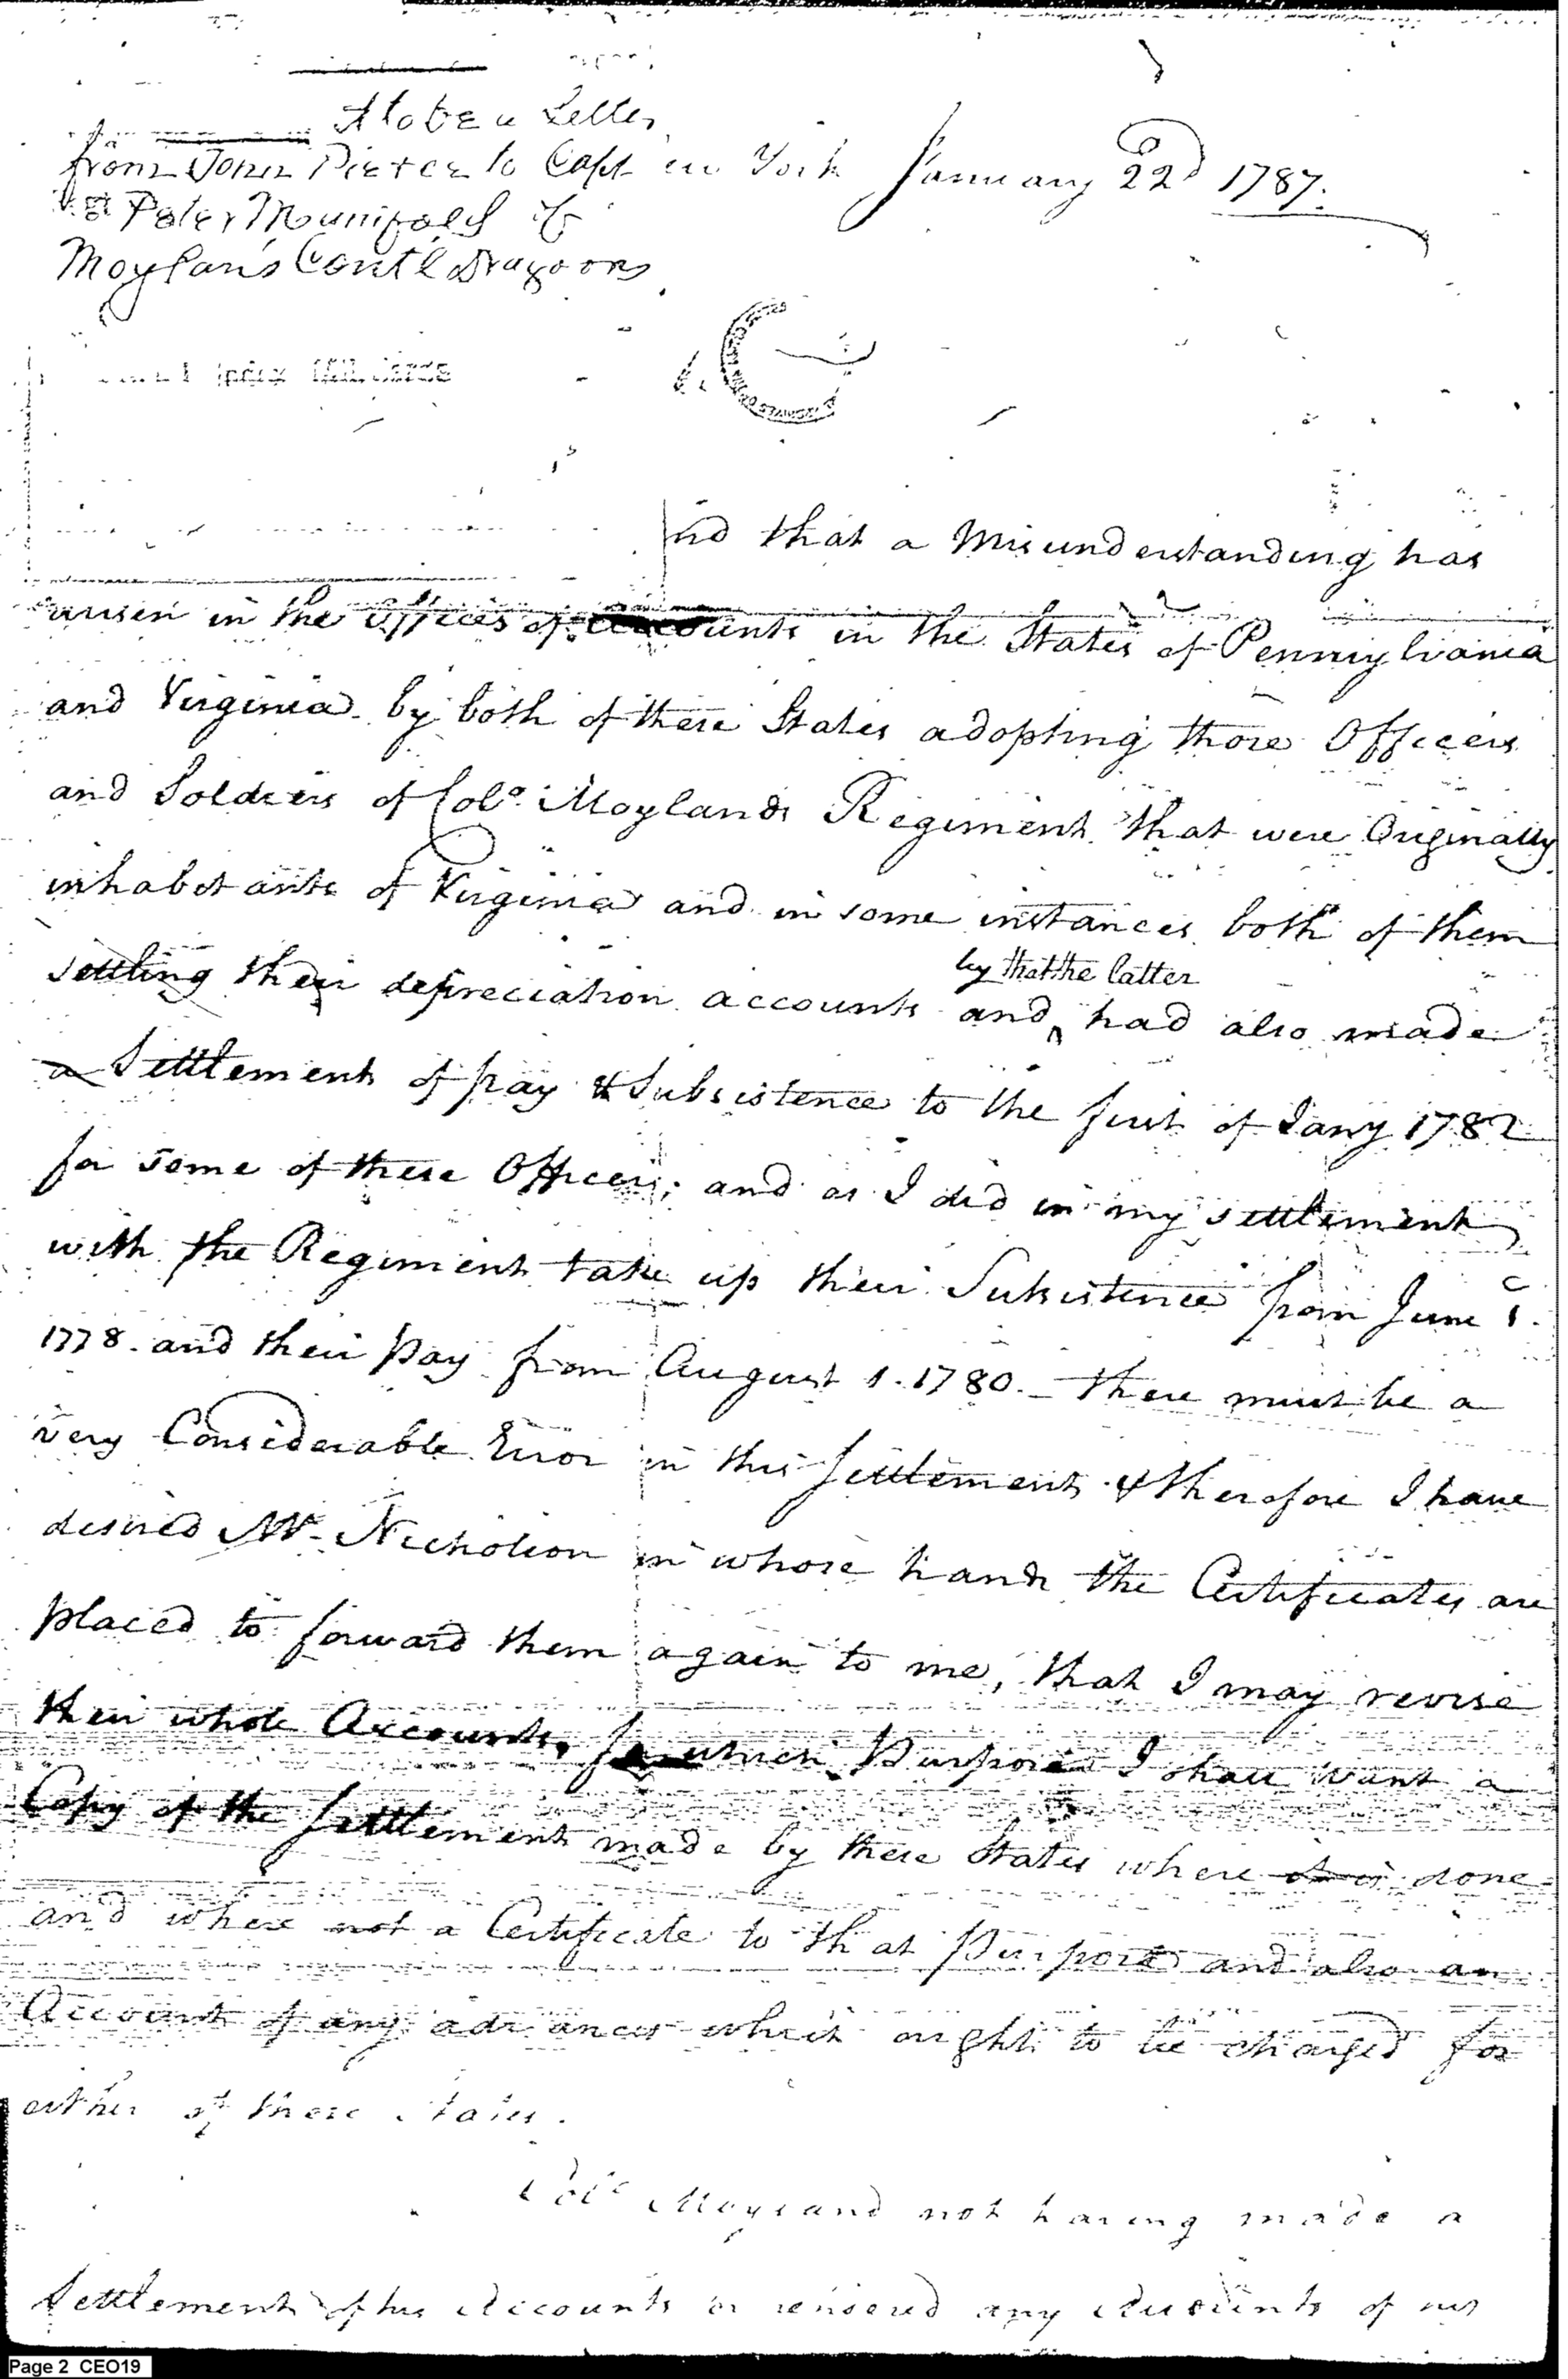 Letter
from John Pierce to Capt
Peter Manifold of
Moylan's Contl Dragoons
York January 22d 1787.
that a Misunderstanding has
arisen in the Offices of Accounts in the States of Pennsylvania
and Virginia by both of these States adopting those Officers
and Soldiers of Colo. Moylands Regiment that were Originally
inhabitants of Virginia and in some instances both of them
settling their depreciation accounts and had also made
by that the latter
a Settlement of pay & Subsistence to the first of Jany 1782
for some of these Officers; and as I did in my settlement
with the Regiment take up their Subsistence from June 1.
1778. and their Pay from August 1. 1780. – there must be a
very Considerable Error in this Settlement & therefore I have
desired Mr. Nicholson in whose hands the Certificates are
placed to forward them again to me, that I may revise
their whole Accounts, for which Purpose I shall want a
Copy of the Settlement made by these States where done
and where not a Certificate to that Purpose and also an
Account of any advances which ought to be charged for
either of these States.
Colo Moyland not having made a
Settlement of his Accounts or rendered any Accounts of his
Page 2 CEO19